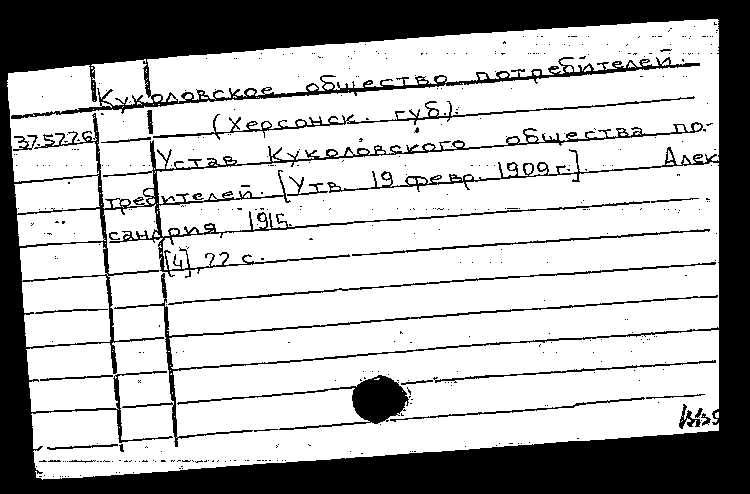 Куколовское общество потребителей.
(Херсонск. губ.).
37.57.76
Устав Куколовского общества по-
требителей. [Утв. 19 февр. 1909 г.]. Алек
сандрия, 1915.
[4], 22 с.